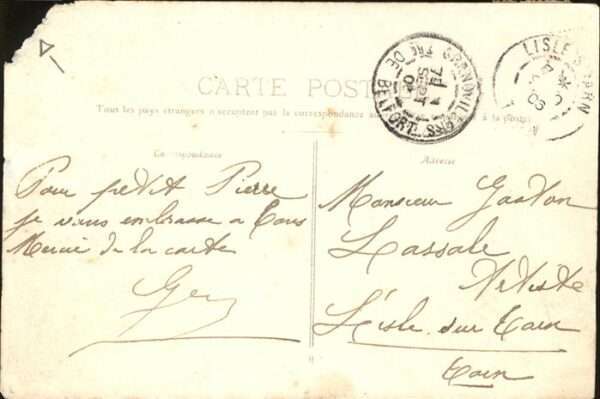 CARTE POST
Tous les pays étrangers n'acceptent pas la correspondance au
à la poste
Correspondance
Adresse
GRANDVILLARS
TRE DE BELFORT
LISLE TARN
Pour petit Pierre
je vous embrasse a tous
Merci de la carte
Monsieur Gaston
Lassale
Artiste
L'isle sur Tarn
Tarn